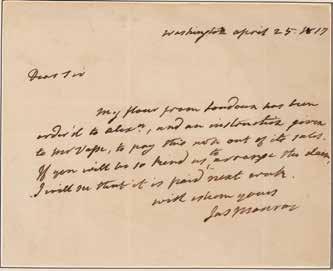 Washington april 25. 1817
Dear Sir
My flour from Loudoun has been
order'd to alexa, and an instruction given
to Mr Vass, to pay this note out of its sales.
If you will be so kind as to arrange the
I will see that it is paid next week.
with esteem yours
Jas Monroe